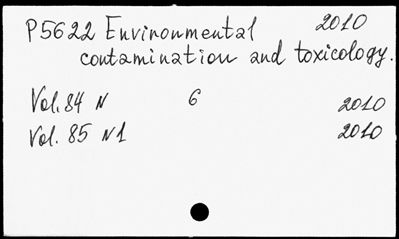 P5622 Environmental 2010
contamination and toxicology.
Vol. 84 N 6 2010
Vol. 85 N1 2010